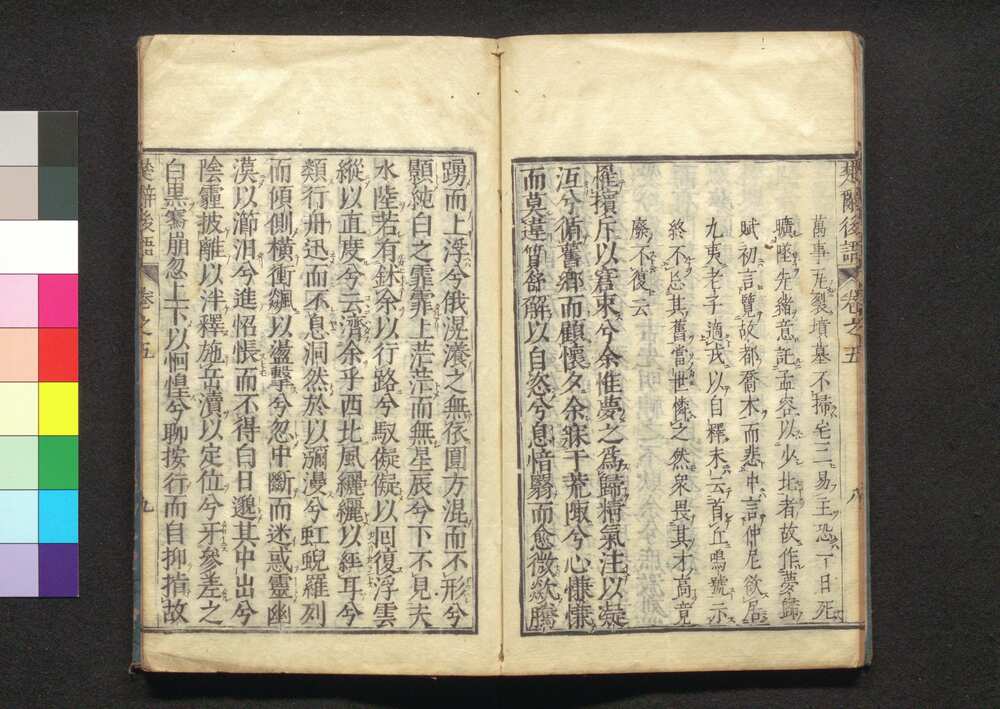 楚辭後語 卷之五 八
萬事瓦裂墳墓不掃宅三易主恐一日死
曠墜先緒意託孟容以少北者故作夢歸
賦初言覽故都喬木而悲中言仲尼欲居
九夷老子適戎以自釋末云首丘鳴號示
終不忘其舊當世憐之然衆畏其才高竟
廢不復云
罹擯斥以窘束兮余惟夢之爲歸精氣注以凝
沍兮循舊鄉而顧懷夕余寐于荒陬兮心慊慊
而莫違質舒解以自恣兮息愔翳而愈微欻騰
踴而上浮兮俄滉瀁之無依圓方混而不形兮
顥純白之霏霏上茫茫而無星辰兮下不見夫
水陸若有鉥余以行路兮馭儗儗以回復浮雲
縱以直度兮云濟余乎西北風纚纚以經耳兮
類行舟迅而不息洞然於以瀰漫兮虹蜺羅列
而傾側橫衝飆以盪擊兮忽中斷而迷惑靈幽
漠以瀄汨兮進怊悵而不得白日邈其中出兮
陰霾披離以泮釋施岳瀆以定位兮牙參差之
白黑騫崩忽上下以徊惶兮聊按行而自抑指故
楚辭後語 卷之五 九